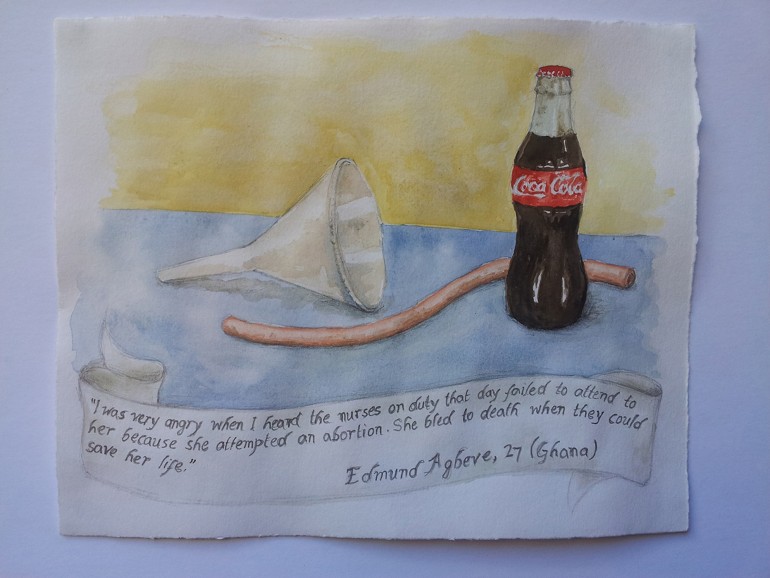 Coca Cola
"I was very angry when I heard the nurses on duty that day failed to attend to
her because she attempted an abortion. She bled to death when they could
save her life."
Edmund Agbeve, 27 (Ghana)